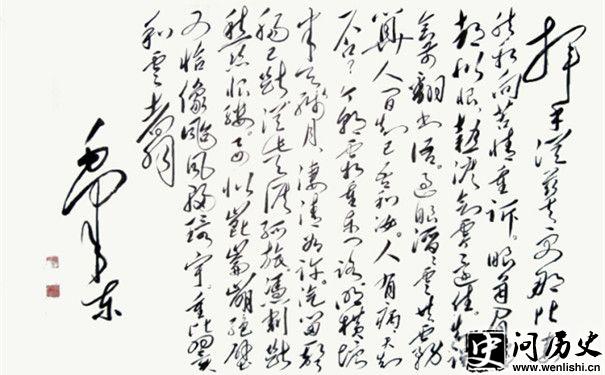 挥手从兹去更那比凄
然相向苦情重诉。眼角眉梢
都似恨,热泪欲零还住。知误
会前翻书语。过眼滔滔云共雾
算人间知己吾和汝。人有病,天知
否?今朝霜重东门路,照横塘
半天残月,凄清如许。汽笛一声
肠已断,从此天涯孤旅。凭割断
愁思恨缕。要似崑崙崩绝壁
又恰像风扫环宇。重比翼
和云翥
毛泽东
史 问历史
www.wenlishi.cn